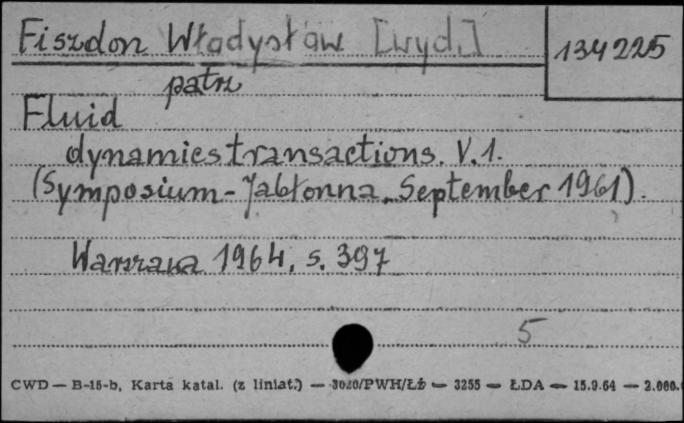 Fiszdon Władysław [wyd.]
134225
patrz
Fluid
dynamics transactions. V.1.
(Symposium - Jabłonna, September 1961).
Warszawa 1964, s. 397
5
CWD — B-15-b, Karta katal. (z liniat.) — 3020/PWH/Łż — 3255 — ŁDA — 15.9.64 — 2.000.